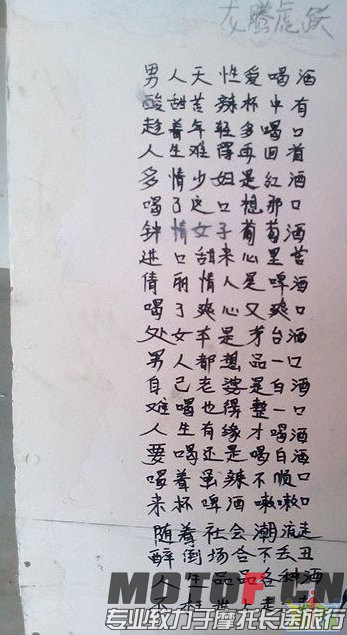 龙腾虎跃
男人天性爱喝酒
酸甜苦辣杯中有
趁着年轻多喝口
人生难得再回首
多情少妇是红酒
喝了这口想那口
钟情女子葡萄酒
进口甜来心里苦
倩丽情人是啤酒
喝了爽心又爽口
处女本是茅台酒
男人都想品一口
自己老婆是白酒
难喝也得整一口
人生有缘才喝酒
要喝还是喝白酒
喝着虽辣不顺口
来杯啤酒嗽嗽口
随着社会潮流走
醉倒场合不去丑
人生品品各种酒
MOTOFAN
专业致力于摩托长途旅行